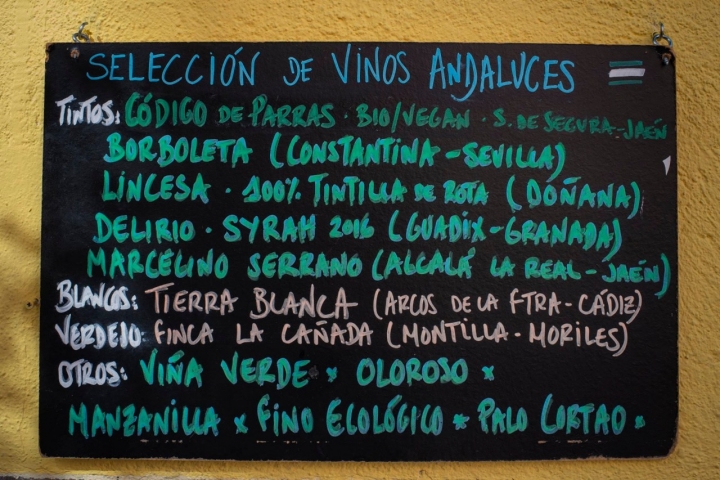 SELECCIÓN DE VINOS ANDALUCES
TINTOS: CÓDIGO DE PARRAS · BIO/VEGAN · S. DE SEGURA-JAÉN
BORBOLETA (CONSTANTINA-SEVILLA)
LINCESA · 100% TINTILLA DE ROTA (DOÑANA)
DELIRIO · SYRAH 2016 (GUADIX-GRANADA)
MARCELINO SERRANO (ALCALÁ LA REAL-JAÉN)
BLANCOS: TIERRA BLANCA (ARCOS DE LA FTRA-CÁDIZ)
VERDEJO: FINCA LA CAÑADA (MONTILLA-MORILES)
OTROS: VIÑA VERDE × OLOROSO ×
MANZANILLA × FINO ECOLÓGICO × PALO CORTAO ·